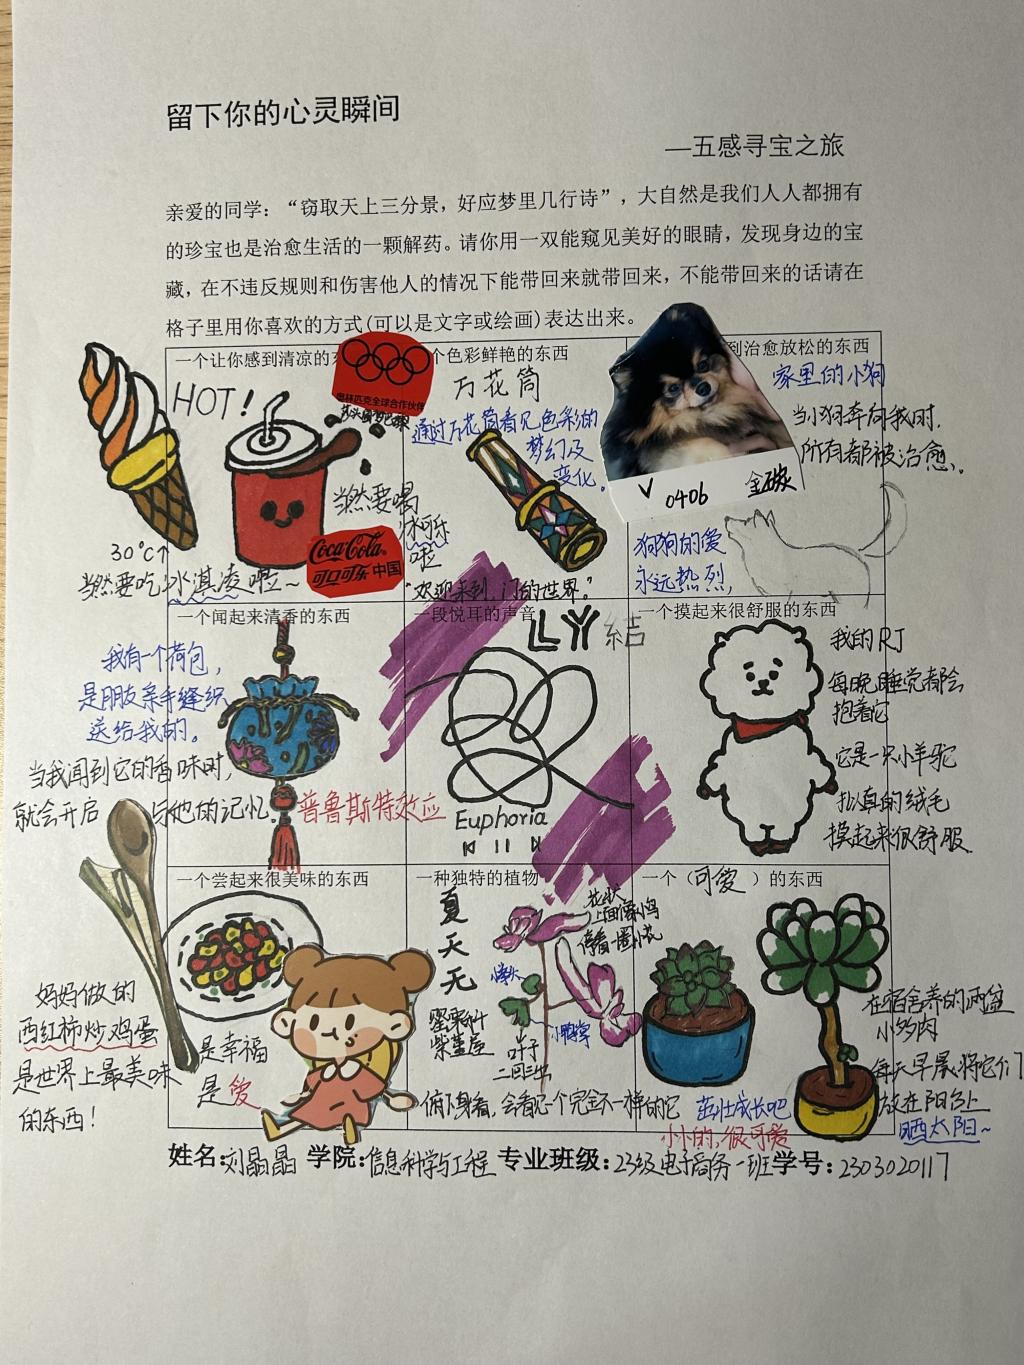 留下你的心灵瞬间
—五感寻宝之旅
亲爱的同学：“窃取天上三分景，好应梦里几行诗”，大自然是我们人人都拥有
的珍宝也是治愈生活的一颗解药。请你用一双能窥见美好的眼睛，发现身边的宝
藏，在不违反规则和伤害他人的情况下能带回来就带回来，不能带回来的话请在
格子里用你喜欢的方式(可以是文字或绘画)表达出来。
一个让你感到清凉的
HOT!
奥林匹克全球合作伙伴
当然要喝
冰可乐
啦
Coca-Cola
可口可乐 中国
30°C↑
当然要吃冰淇凌啦~
个色彩鲜艳的东西
万花筒
通过万花筒看见色彩的
梦幻及
变化。
“欢迎来到 门的世界。”
到治愈放松的东西
家里的小狗
当小狗奔向我时，
所有都被治愈、
0406
狗狗的爱
永远热烈，
一个闻起来清香的东西
我有一个荷包，
是朋友亲手缝织
送给我的。
当我闻到它的香味时，
就会开启 与他的记忆。
普鲁斯特效应
一段悦耳的声音
LY 結
Euphoria
一个摸起来很舒服的东西
我的RJ
每晚睡觉都会
抱着它
它是一只小羊驼
扒真的绒毛
摸起来很舒服
一个尝起来很美味的东西
妈妈做的
西红柿炒鸡蛋
是世界上最美味
的东西！
是幸福
是爱
一种独特的植物
夏
天
无
罂粟科
紫堇属
花状
叶子
二回三出
俯下身看，会看见个完全不一样的它
一个（可爱）的东西
在宿舍养的两盆
小多肉
每天早晨将它们
放在阳台上
晒太阳~
茁壮成长吧
小小的，很可爱
姓名：刘晶晶 学院：信息科学与工程 专业班级：23级电子商务一班 学号：2303020117